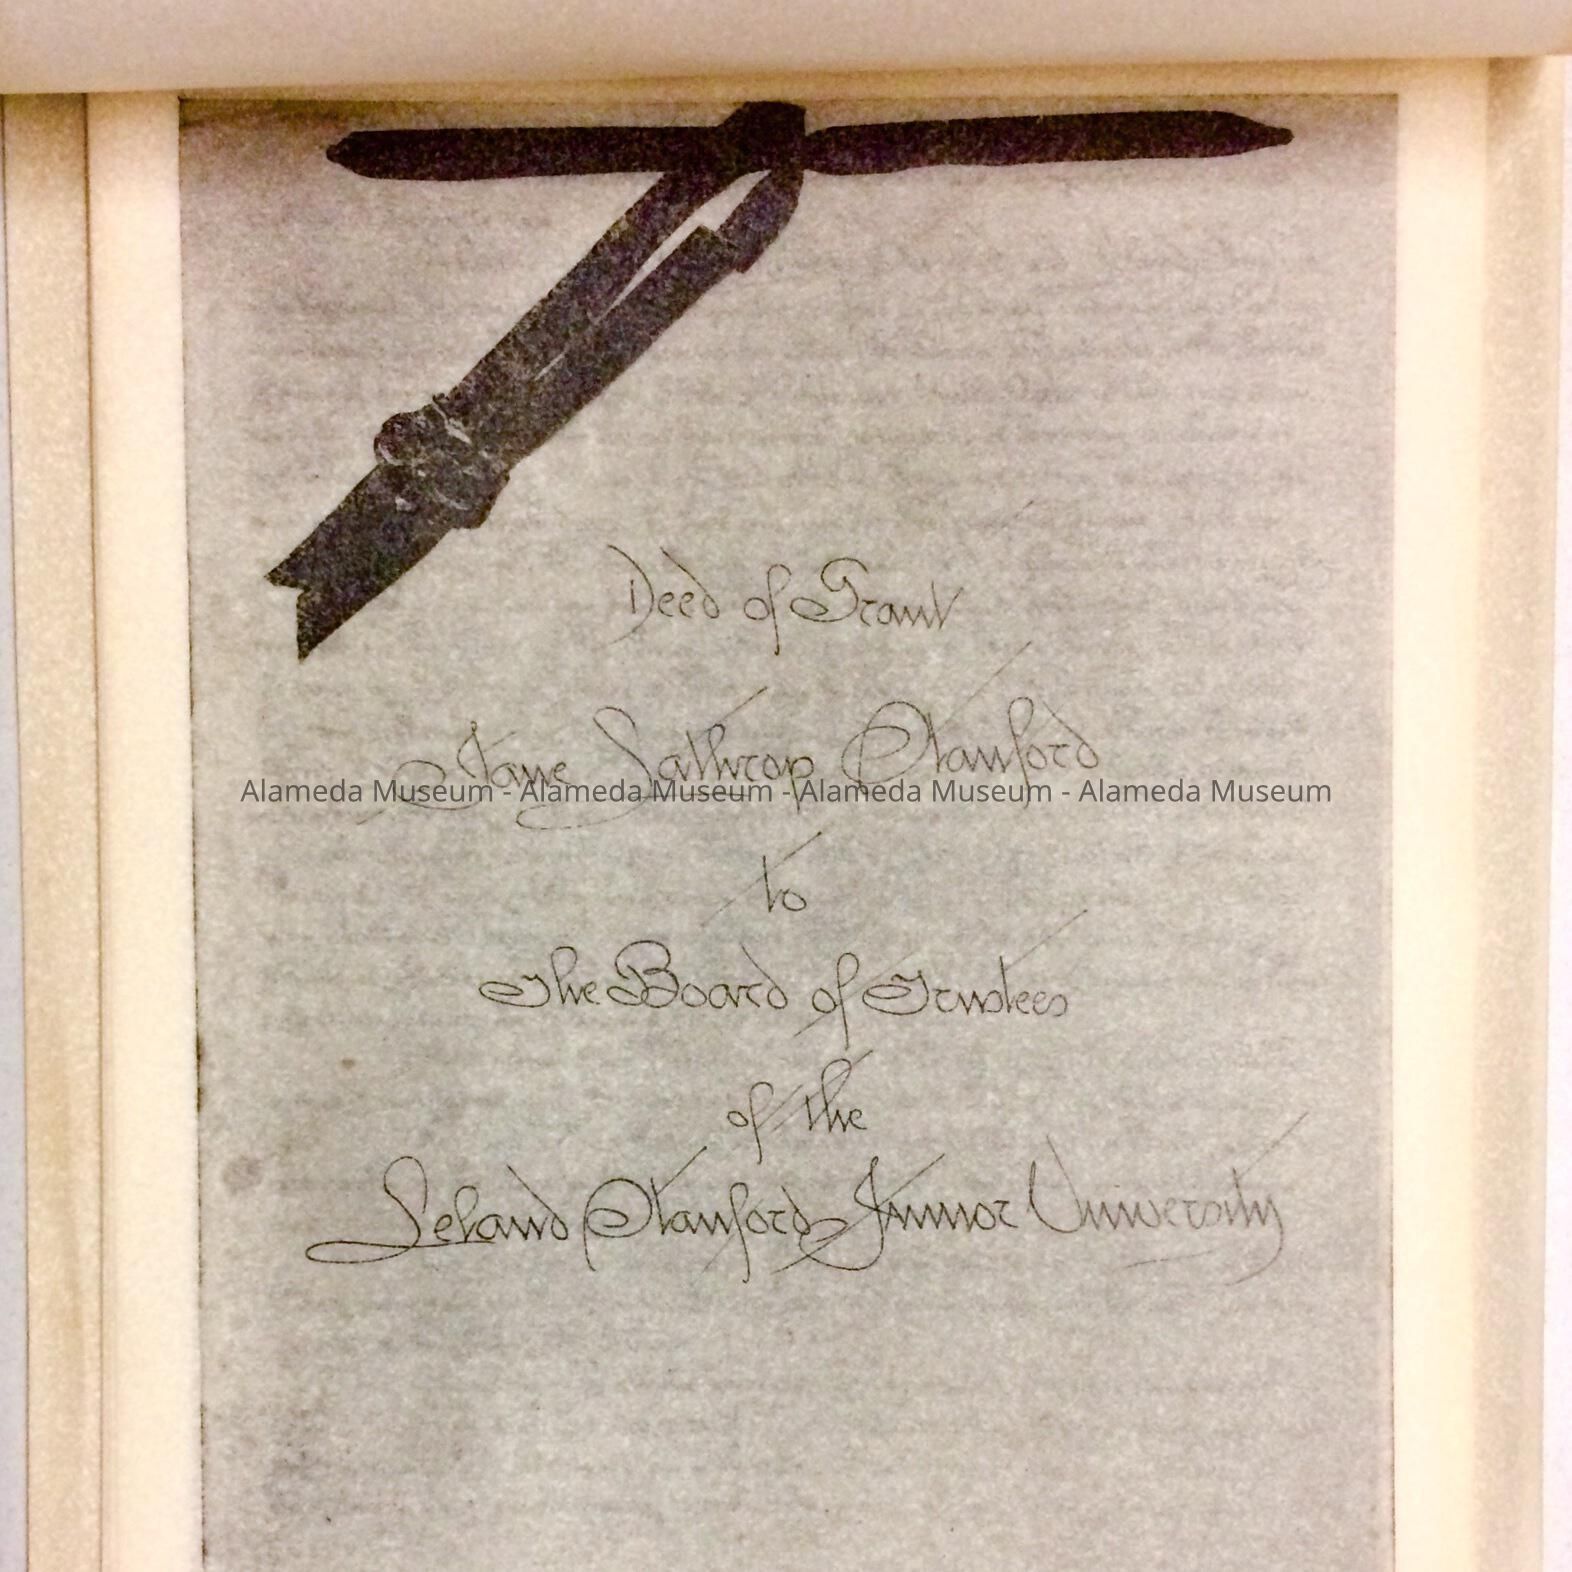 Deed of Grant
Jane Lathrop Stanford
Alameda Museum - Alameda Museum - Alameda Museum - Alameda Museum
to
The Board of Trustees
of the
Leland Stanford Junior University